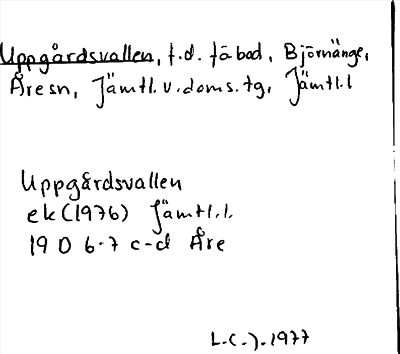 Uppgårdsvallen, f.d. fäbod, Björnänge,
Åresn, Jämtl.v.doms.tg, Jämtl.l
Uppgårdsvallen
ek(1976) Jämtl.l.
19 D 6-7 c-d Åre
L.C.J. 1977